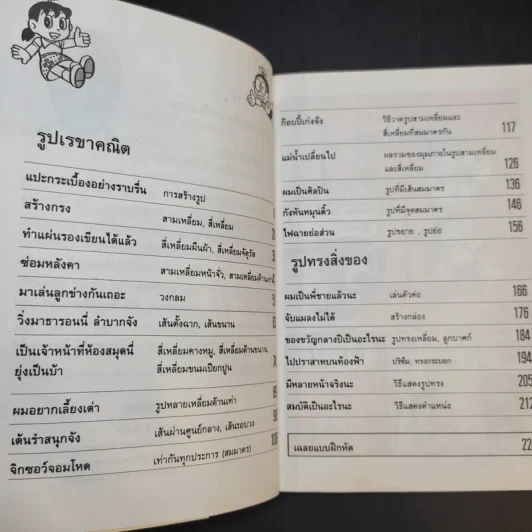 รูปเรขาคณิต
แปะกระเบื้องอย่างราบรื่น การสร้างรูป
สร้างกรง สามเหลี่ยม, สี่เหลี่ยม
ทำแผ่นรองเขียนได้แล้ว สี่เหลี่ยมผืนผ้า, สี่เหลี่ยมจัตุรัส
ซ่อมหลังคา สามเหลี่ยมหน้าจั่ว, สามเหลี่ยมด้านเท่า
มาเล่นลูกข่างกันเถอะ วงกลม
วิ่งมาธารอนนี่ ลำบากจัง เส้นตั้งฉาก, เส้นขนาน
เป็นเจ้าหน้าที่ห้องสมุดนี่ สี่เหลี่ยมคางหมู, สี่เหลี่ยมด้านขนาน,
ยุ่งเป็นบ้า สี่เหลี่ยมขนมเปียกปูน
ผมอยากเลี้ยงเต่า รูปหลายเหลี่ยมด้านเท่า
เต้นรำสนุกจัง เส้นผ่านศูนย์กลาง, เส้นรอบวง
จิกซอว์จอมโหด เท่ากันทุกประการ (สมมาตร) 108
ก๊อบปี้เก่งจัง วิธีวาดรูปสามเหลี่ยมและ
สี่เหลี่ยมที่สมมาตรกัน 117
แม่น้ำเปลี่ยนไป ผลรวมของมุมภายในรูปสามเหลี่ยม
และสี่เหลี่ยม 126
ผมเป็นศิลปิน รูปที่มีเส้นสมมาตร 136
กังหันหมุนติ้ว รูปที่มีจุดสมมาตร 146
ไฟฉายย่อส่วน รูปขยาย , รูปย่อ 156
รูปทรงสิ่งของ
ผมเป็นพี่ชายแล้วนะ เล่นตัวต่อ 166
จับแมลงไม่ได้ สร้างกล่อง 176
ของขวัญกลางปีเป็นอะไรนะ รูปทรงเหลี่ยม, ลูกบาศก์ 184
ไปปราสาทบนท้องฟ้า ปริซึม, ทรงกระบอก 194
มีหลายหน้าจริงนะ วิธีแสดงรูปทรง 205
สมบัติเป็นอะไรนะ วิธีแสดงตำแหน่ง 212
เฉลยแบบฝึกหัด 22